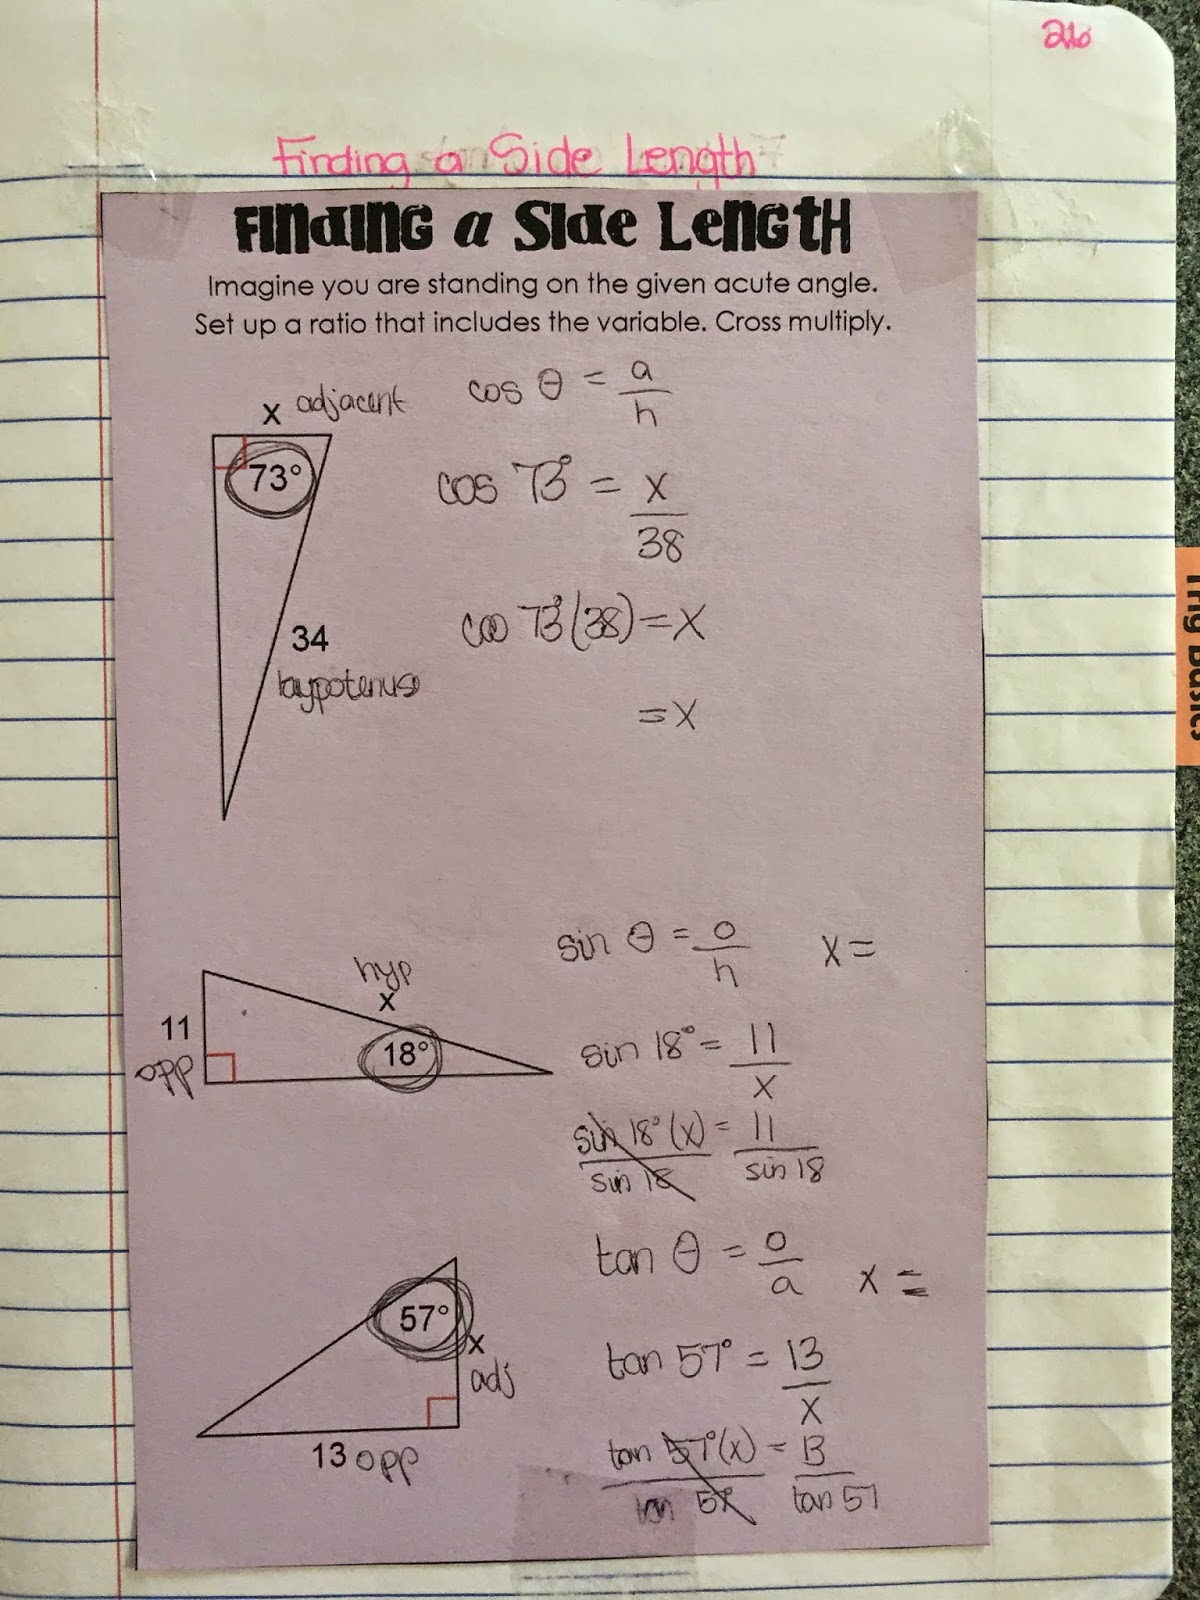 26
Finding a Side Length
Finding a Side Length
Imagine you are standing on the given acute angle.
Set up a ratio that includes the variable. Cross multiply.
x adjacent
73°
34
hypotenuse
cos θ = a/h
cos 73° = x/38
cos 73°(38) = x
= x
hyp
x
11
opp
18°
sin θ = o/h x =
sin 18° = 11/x
sin 18°(x)/sin 18 = 11/sin 18
57°
x
adj
13 opp
tan θ = o/a x =
tan 57° = 13/x
tan 57°(x)/tan 57 = 13/tan 57
Trig Basics